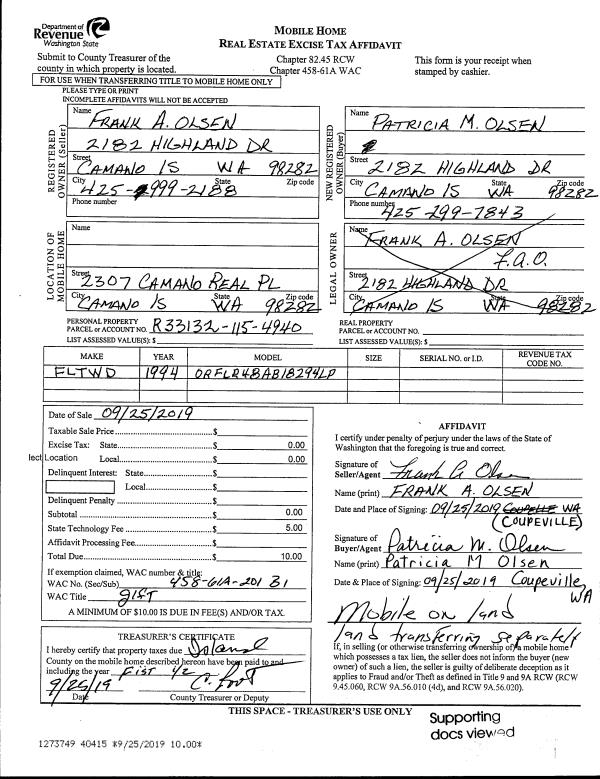 Department of
Revenue
Washington State
MOBILE HOME
REAL ESTATE EXCISE TAX AFFIDAVIT
Submit to County Treasurer of the
county in which property is located.
Chapter 82.45 RCW
Chapter 458-61A WAC
This form is your receipt when
stamped by cashier.
FOR USE WHEN TRANSFERRING TITLE TO MOBILE HOME ONLY
PLEASE TYPE OR PRINT
INCOMPLETE AFFIDAVITS WILL NOT BE ACCEPTED
REGISTERED
OWNER (Seller)
Name FRANK A. OLSEN
2182 HIGHLAND DR
Street
CAMANO IS WA 98282
City State Zip code
425-999-2188
Phone number
NEW REGISTERED
OWNER (Buyer)
Name PATRICIA M. OLSEN
Street 2182 HIGHLAND DR
City CAMANO IS State WA Zip code 98282
Phone number 425-299-7843
LOCATION OF
MOBILE HOME
Name
Street 2307 CAMANO REAL PL
City CAMANO IS State WA Zip code 98282
LEGAL OWNER
Name FRANK A. OLSEN
F.A.O.
Street 2182 HIGHLAND DR
City CAMANO IS State WA Zip code 98282
PERSONAL PROPERTY
PARCEL or ACCOUNT NO. R33132-115-4940
LIST ASSESSED VALUE(S): $
REAL PROPERTY
PARCEL or ACCOUNT NO.
LIST ASSESSED VALUE(S): $
MAKE YEAR MODEL SIZE SERIAL NO. or I.D. REVENUE TAX CODE NO.
FLTWD 1994 ORFLR48AB18294LP
Date of Sale 09/25/2019
Taxable Sale Price $
Excise Tax: State $ 0.00
lect Location Local $ 0.00
Delinquent Interest: State $
Local $
Delinquent Penalty $
Subtotal $ 0.00
State Technology Fee $ 5.00
Affidavit Processing Fee $
Total Due $ 10.00
If exemption claimed, WAC number & title:
WAC No. (Sec/Sub) 458-61A-201 B1
WAC Title gift
A MINIMUM OF $10.00 IS DUE IN FEE(S) AND/OR TAX.
AFFIDAVIT
I certify under penalty of perjury under the laws of the State of
Washington that the foregoing is true and correct.
Signature of
Seller/Agent Frank A Olsen
Name (print) FRANK A. OLSEN
Date and Place of Signing: 09/25/2019 COUPELLE WA
(COUPEVILLE)
Signature of
Buyer/Agent Patricia M. Olsen
Name (print) Patricia M Olsen
Date & Place of Signing: 09/25/2019 Coupeville,
WA
Mobile on land
land transferring separately
If, in selling (or otherwise transferring ownership of) a mobile home
which possesses a tax lien, the seller does not inform the buyer (new
owner) of such a lien, the seller is guilty of deliberate deception as it
applies to Fraud and/or Theft as defined in Title 9 and 9A RCW (RCW
9.45.060, RCW 9A.56.010 (4d), and RCW 9A.56.020).
TREASURER'S CERTIFICATE
I hereby certify that property taxes due Island
County on the mobile home described hereon have been paid to and
including the year First 1/2
9/25/19
Date County Treasurer or Deputy
THIS SPACE - TREASURER'S USE ONLY
Supporting
docs viewed
1273749 40415 *9/25/2019 10.00*